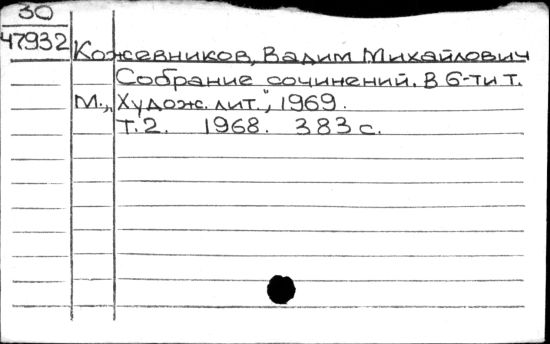 30
47932
Кожевников, Вадим Михайлович
Собрание сочинений. В 6-ти т.
М., „Худож. лит.", 1969.
Т.2. 1968. 383 с.